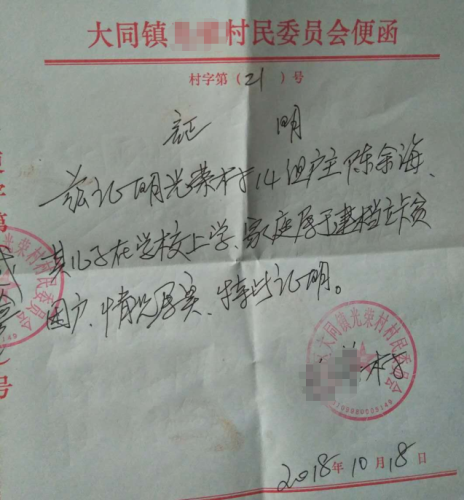 大同镇 村民委员会便函
村字第(21)号
证 明
兹证明光荣村14组户主陈余海、
其儿子在学校上学、家庭属于建档立卡贫
困户、情况属实、特此证明。
大同镇光荣村村民委员会
2018年10月18日